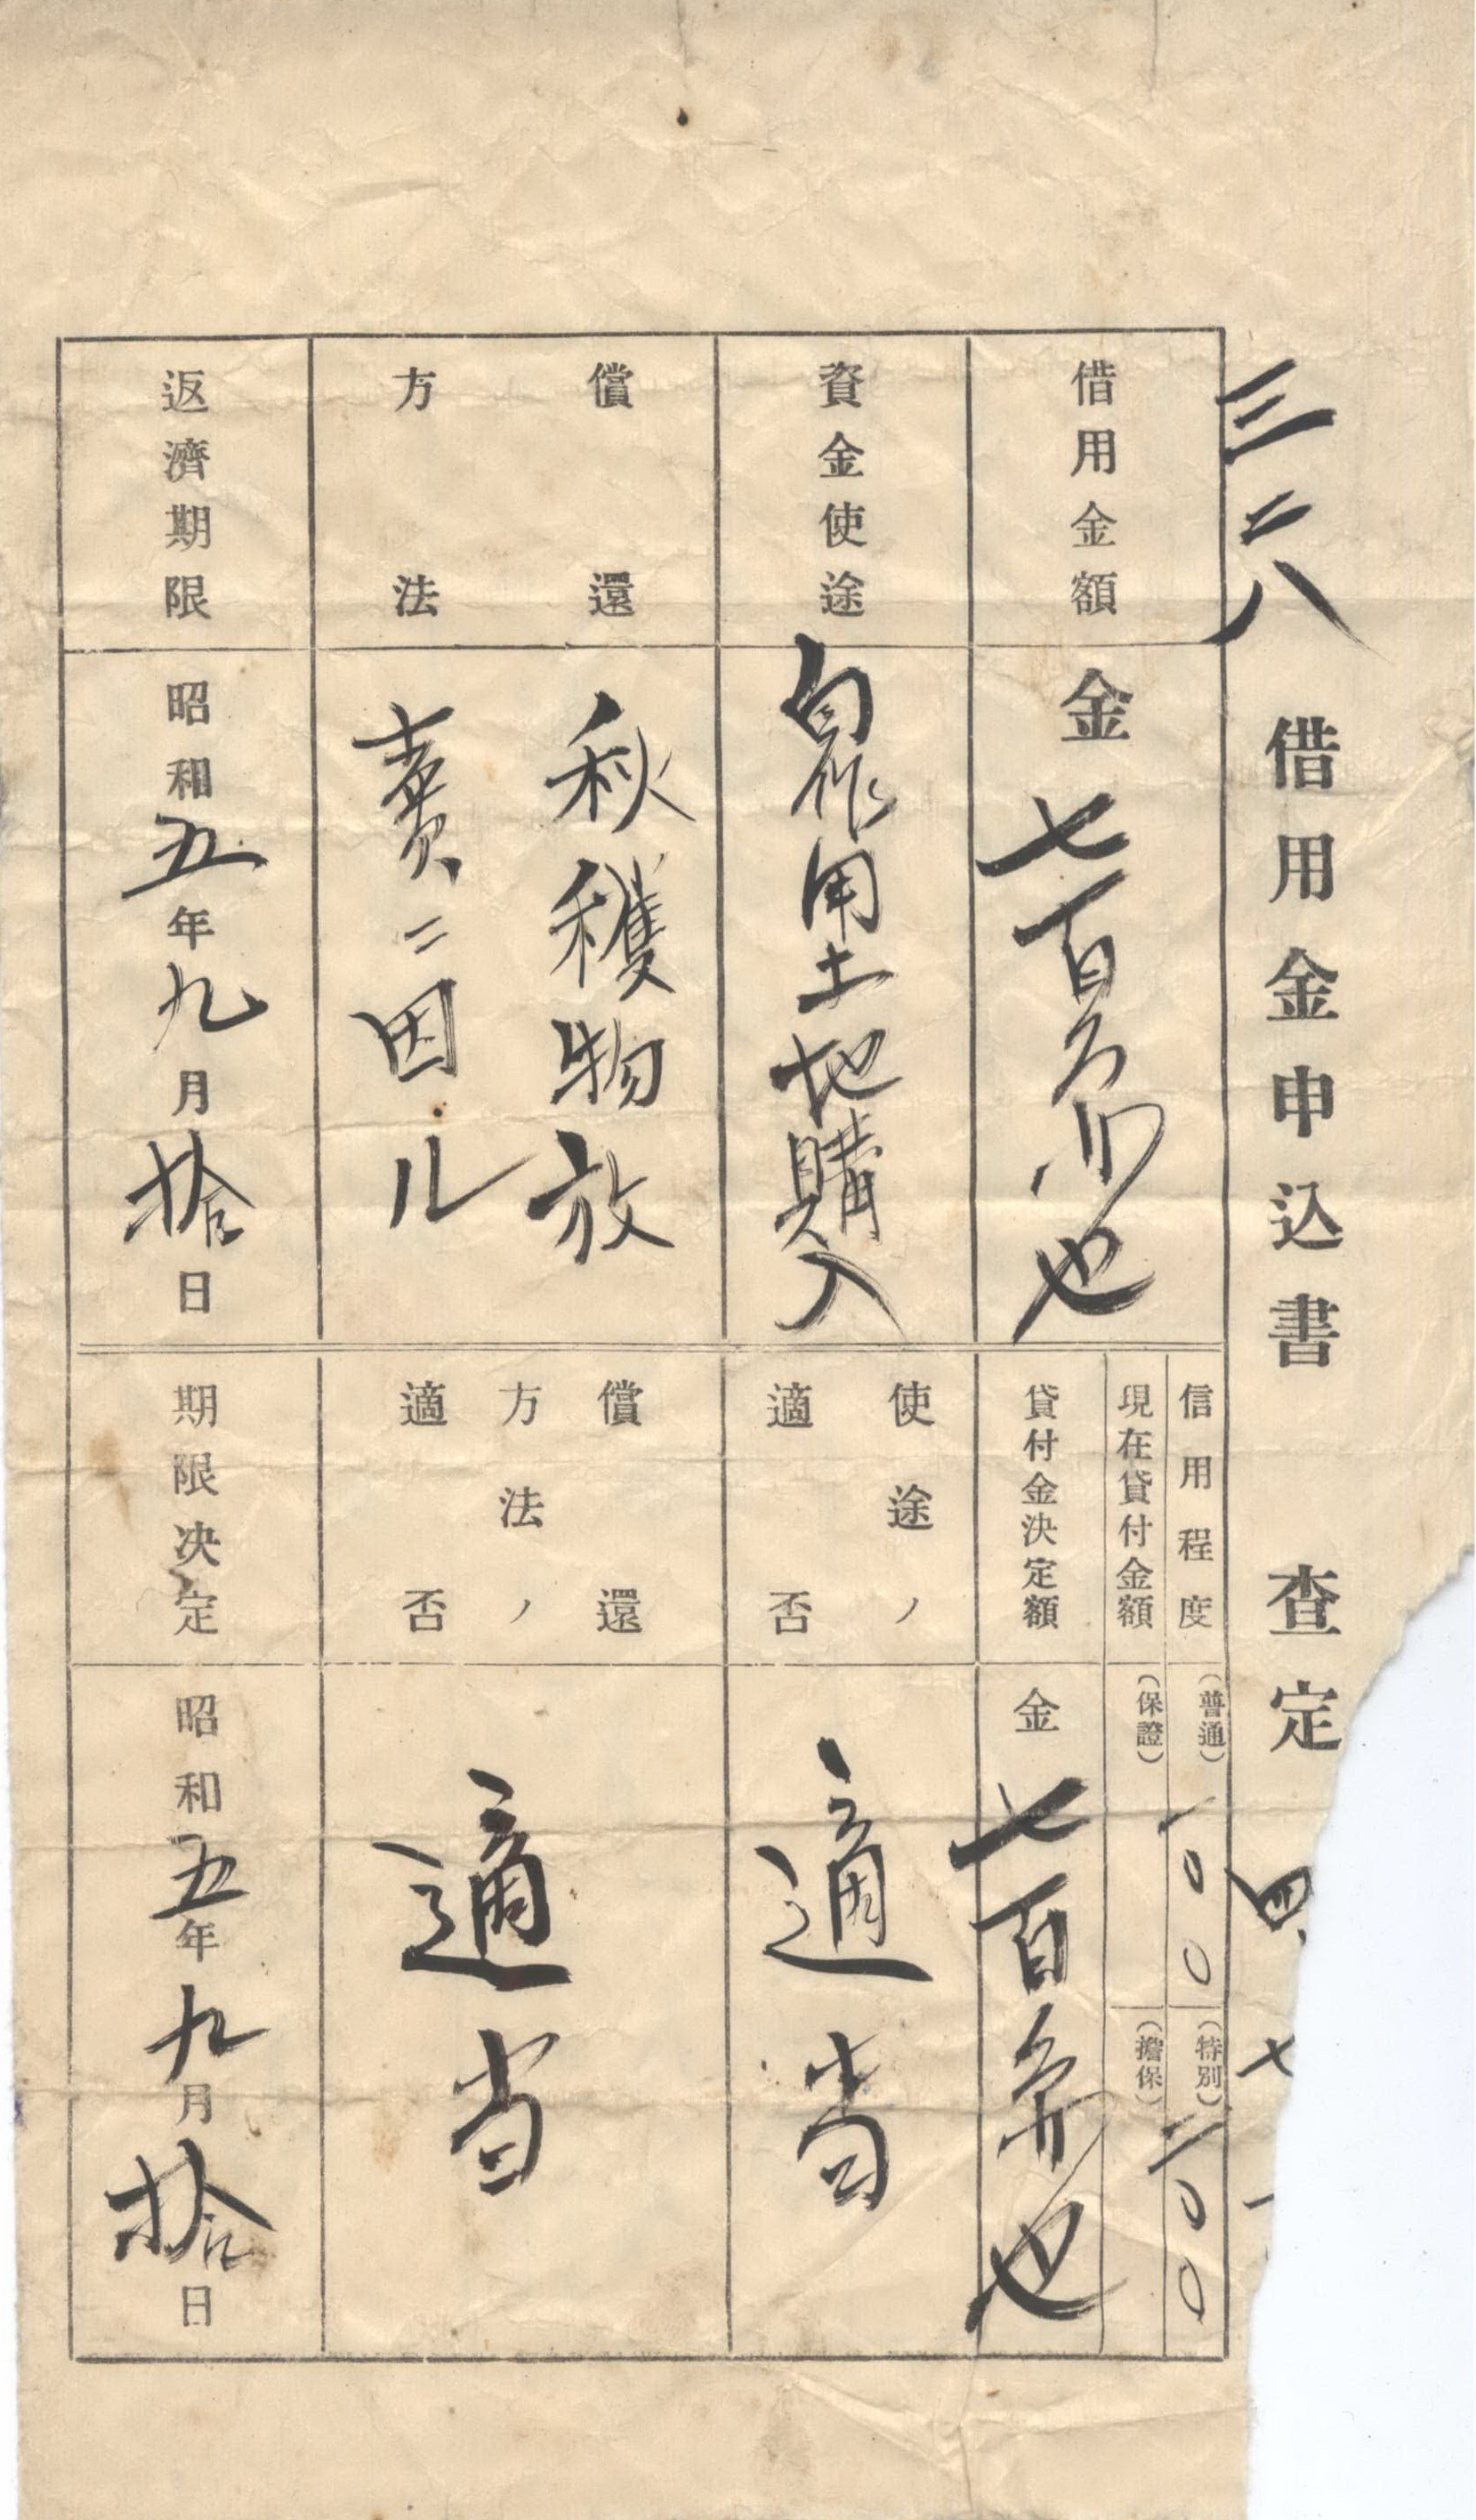 三二八
借用金申込書　査定
四七一
借用金額
金七百也
資金使途
自作用土地購入
償還
方法
秋穫物放
賣ニ因ル
返濟期限
昭和五年九月拾日
信用程度
(普通)一〇〇
(特別)二〇〇
現在貸付金額
(保證)
(擔保)
貸付金決定額
金七百也
使途ノ
適否
適当
償還
方法ノ
適否
適当
期限決定
昭和五年九月拾日